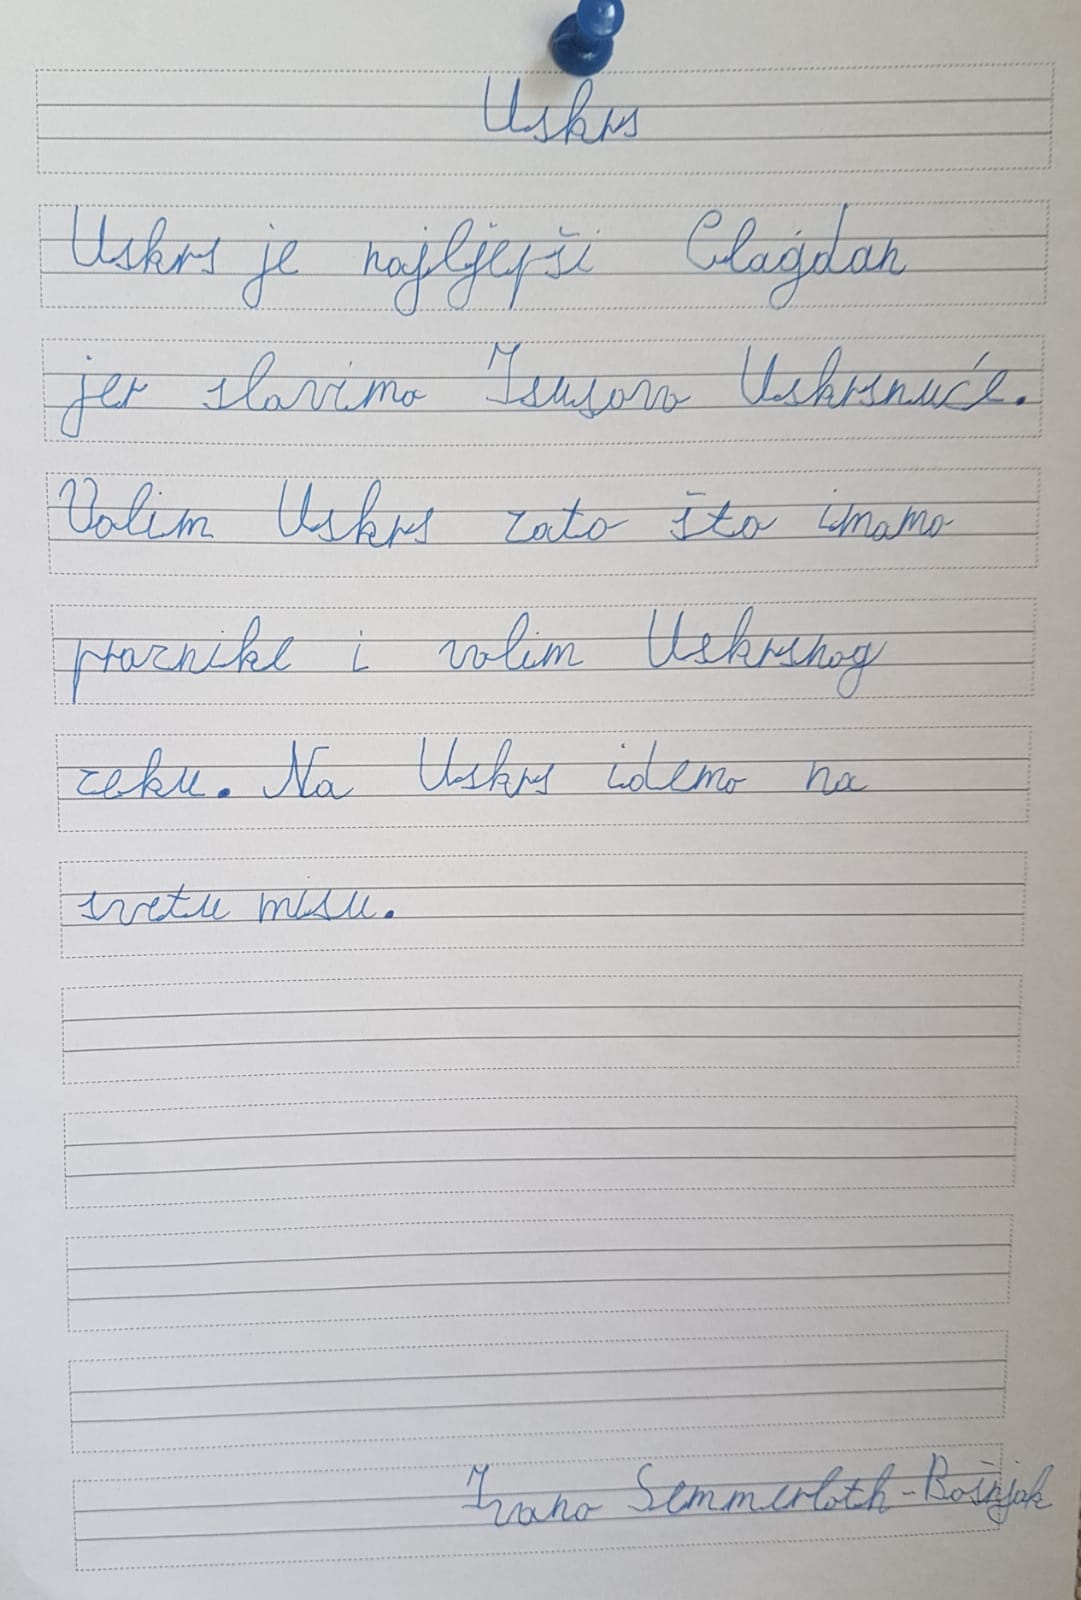 Uskrs
Uskrs je najljepši
jer slavimo Isusovo Uskrsnuće.
Volim Uskrs zato što imamo
praznike i volim Uskrsnog
zeku. Na Uskrs idemo na
svetu misu.
Ivano Semmerloth-Bošnjak